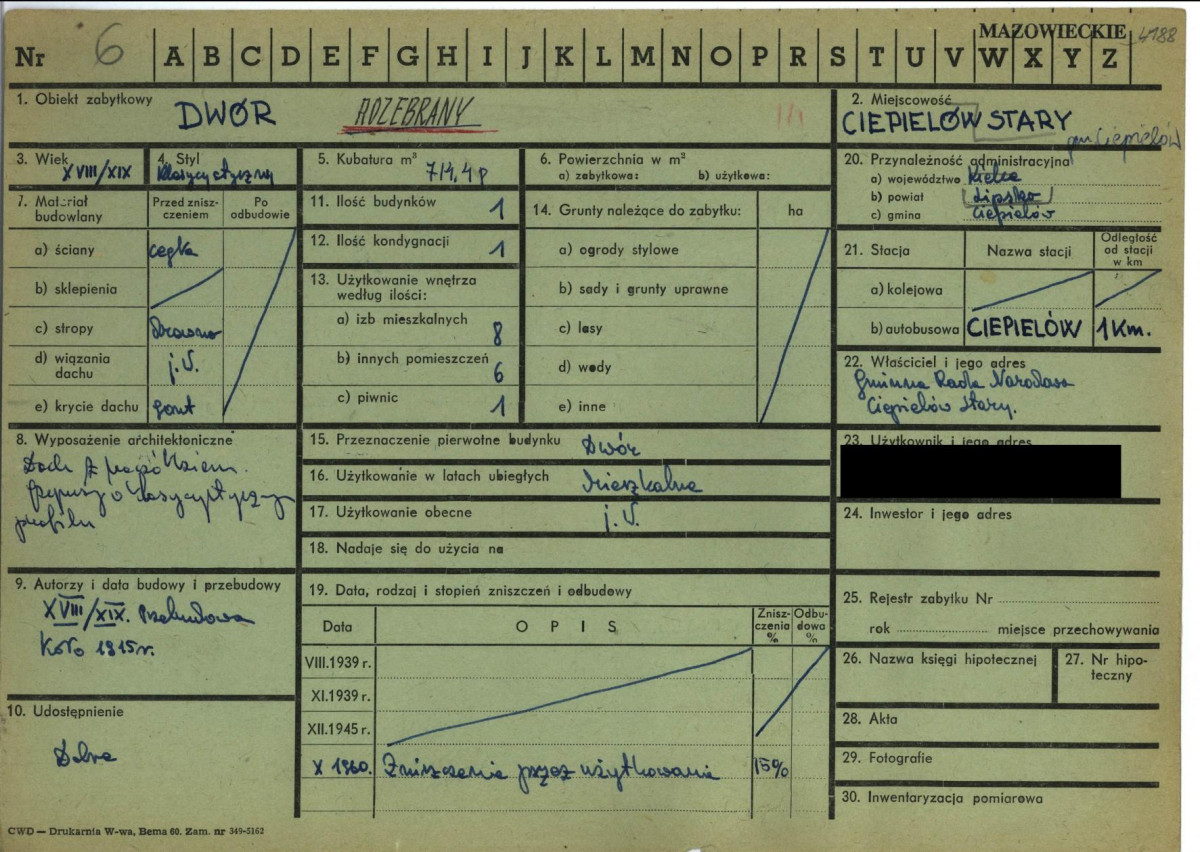 MAZOWIECKIE 4188
Nr 6 A B C D E F G H I J K L M N O P R S T U V W X Y Z
1. Obiekt zabytkowy
DWÓR ROZEBRANY
2. Miejscowość
CIEPIELÓW STARY
gm. Ciepielów
3. Wiek
XVIII/XIX
4. Styl
klasycystyczny
5. Kubatura m³
714.4
6. Powierzchnia w m²
a) zabytkowa: b) użytkowa:
7. Materiał budowlany
Przed znisz-
czeniem
Po
odbudowie
a) ściany cegła
b) sklepienia
c) stropy Drewno
d) wiązania
dachu j.w.
e) krycie dachu gont
8. Wyposażenie architektoniczne
Dach z
o klasycystyczny
profilu
9. Autorzy i data budowy i przebudowy
XVIII/XIX. Przebudowa
Koło 1915 r.
10. Udostępnienie
Dobre
11. Ilość budynków 1
12. Ilość kondygnacji 1
13. Użytkowanie wnętrza
według ilości:
a) izb mieszkalnych 8
b) innych pomieszczeń 6
c) piwnic 1
14. Grunty należące do zabytku: ha
a) ogrody stylowe
b) sady i grunty uprawne
c) lasy
d) wody
e) inne
15. Przeznaczenie pierwotne budynku Dwór
16. Użytkowanie w latach ubiegłych Mieszkalne
17. Użytkowanie obecne j.w.
18. Nadaje się do użycia na
19. Data, rodzaj i stopień zniszczeń i odbudowy
Data O P I S Znisz-
czenia
%
Odbu-
dowa
%
VIII.1939 r.
XI.1939 r.
XII.1945 r.
X 1960. Zniszczenie przez użytkowanie 15%
20. Przynależność administracyjna
a) województwo Kielce
b) powiat Lipsko
c) gmina Ciepielów
21. Stacja Nazwa stacji Odległość
od stacji
w km
a) kolejowa
b) autobusowa CIEPIELÓW 1 Km.
22. Właściciel i jego adres
Gminna Rada Narodowa
Ciepielów Stary.
23. Użytkownik i jego adres
24. Inwestor i jego adres
25. Rejestr zabytku Nr
rok miejsce przechowywania
26. Nazwa księgi hipotecznej
27. Nr hipo-
teczny
28. Akta
29. Fotografie
30. Inwentaryzacja pomiarowa
CWD — Drukarnia W-wa, Bema 60. Zam. nr 349-5162